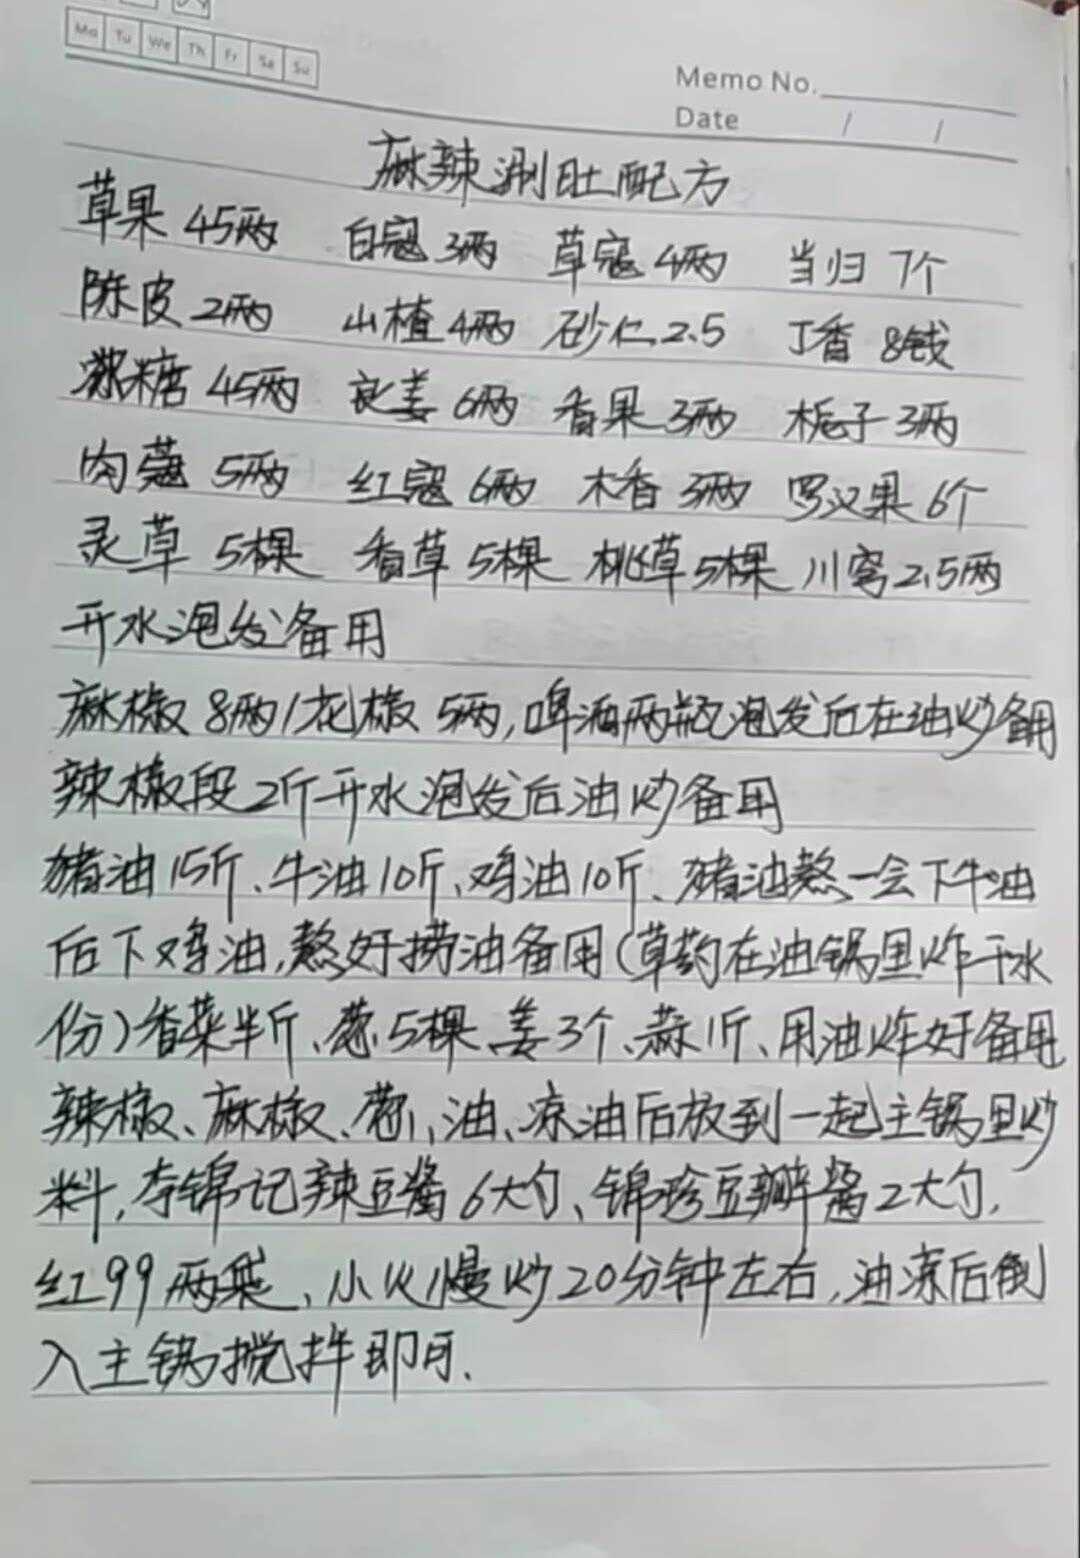 Mo Tu We Th Fr Sa Su
Memo No.
Date / /
麻辣涮肚配方
草果 45两 白寇 3两 草寇 4两 当归 7个
陈皮 2两 山楂 4两 砂仁 2.5 丁香 8钱
冰糖 45两 良姜 6两 香果 3两 栀子 3两
肉蔻 5两 红寇 6两 木香 3两 罗汉果 6个
灵草 5棵 香草 5棵 桃草 5棵 川穹 2.5两
开水泡发备用
麻椒 8两/花椒 5两,啤酒两瓶泡发后在油炒备用
辣椒段 2斤开水泡发后油炒备用
猪油 15斤、牛油 10斤、鸡油 10斤、猪油熬一会下牛油
后下鸡油,熬好捞油备用(草药在油锅里炸干水
份)香菜半斤、葱 5棵、姜 3个、蒜 1斤、用油炸好备用
辣椒、麻椒、葱、油、凉油后放到一起主锅里炒
料,李锦记辣豆酱 6大勺、锦珍豆瓣酱 2大勺,
红99 两袋、小火慢炒 20分钟左右,油凉后倒
入主锅搅拌即可.